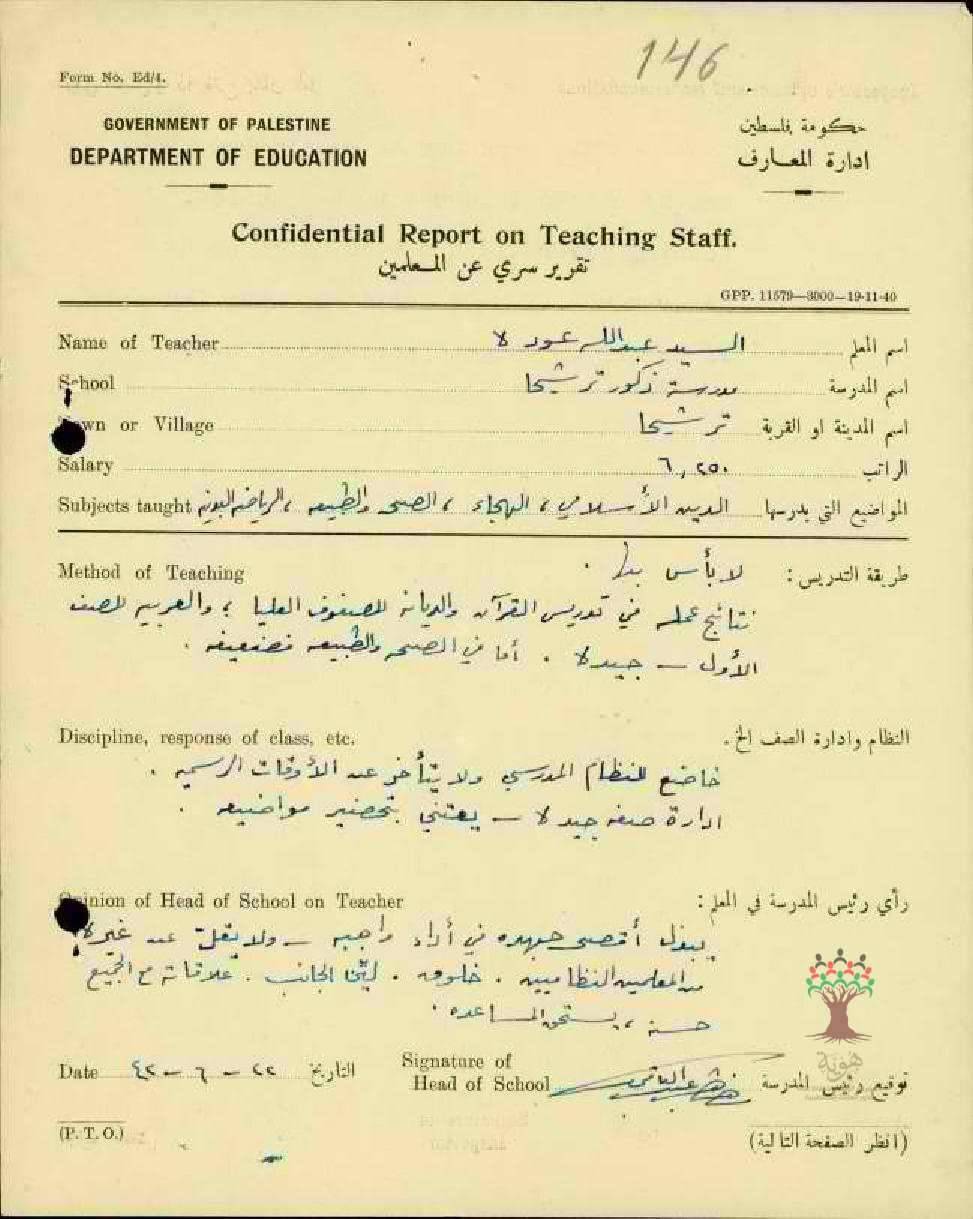 146
Form No. Ed/4.
GOVERNMENT OF PALESTINE
حكومة فلسطين
DEPARTMENT OF EDUCATION
ادارة المعارف
Confidential Report on Teaching Staff.
تقرير سري عن المعلمين
GPP. 11579—3000—19-11-40
Name of Teacher السيد عبدالله عوده اسم المعلم
School مدرسة ذكور ترشيحا اسم المدرسة
Town or Village ترشيحا اسم المدينة او القرية
Salary ٦,٢٥٠ الراتب
Subjects taught الدين الأسلامي، الهجاء، الصحه والطبيعه، الرياضه البدنيه المواضيع التي يدرسها
Method of Teaching لا بأس بها. طريقة التدريس:
نتائج عمله في تدريس القرآن والديانه للصفوف العليا؛ والعربيه للصف
الأول — جيده. أما في الصحه والطبيعه فضعيفه.
Discipline, response of class, etc. النظام وادارة الصف الخ.
خاضع للنظام المدرسي ولا يتأخر عن الأوقات الرسميه.
ادارة صفه جيده — يعتني بتحضير مواضيعه.
Opinion of Head of School on Teacher رأي رئيس المدرسة في المعلم:
يبذل أقصى جهده في أداء واجبه — ولا يقل عن غيره
من المعلمين النظاميين. خلوق. ليّن الجانب. علاقاته مع الجميع
حسنه، يستحق المساعده.
Date ٢٢ - ٦ - ٤٢ التاريخ Signature of
Head of School توقيع رئيس المدرسة
هوية
(P. T. O.) (انظر الصفحة التالية)